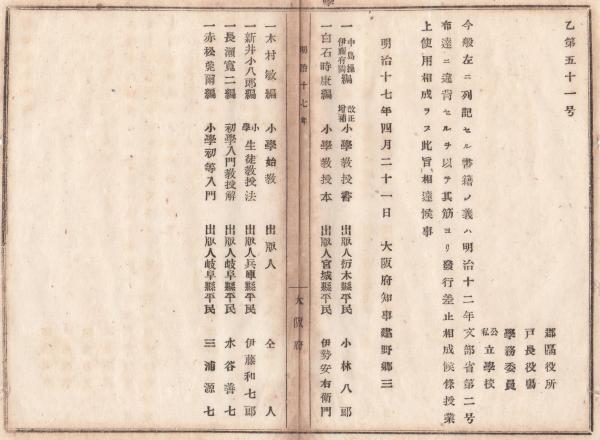 乙第五十一号
郡區役所
戸長役塲
學務委員
公私立學校
今般左ニ列記セル書籍ノ義ハ明治十二年文部省第二号
布達ニ違背セルヲ以テ其筋ヨリ發行差止相成候條授業
上使用相成ラス此旨相達候事
明治十七年四月二十一日 大阪府知事建野郷三
一中島操伊藤有隣編 改正増補小學教授書 出版人栃木縣平民 小林八郎
一白石時康編 小學教授本 出版人宮城縣平民 伊勢安右衛門
明治十七年 大阪府
一木村敏編 小學始教 出版人 仝人
一新井小八郎編 小學生徒教授法 出版人兵庫縣平民 伊藤和七郎
一長瀬寛二編 初學入門教授解 出版人岐阜縣平民 水谷善七
一赤松 爾編 小學初等入門 出版人岐阜縣平民 三浦源七